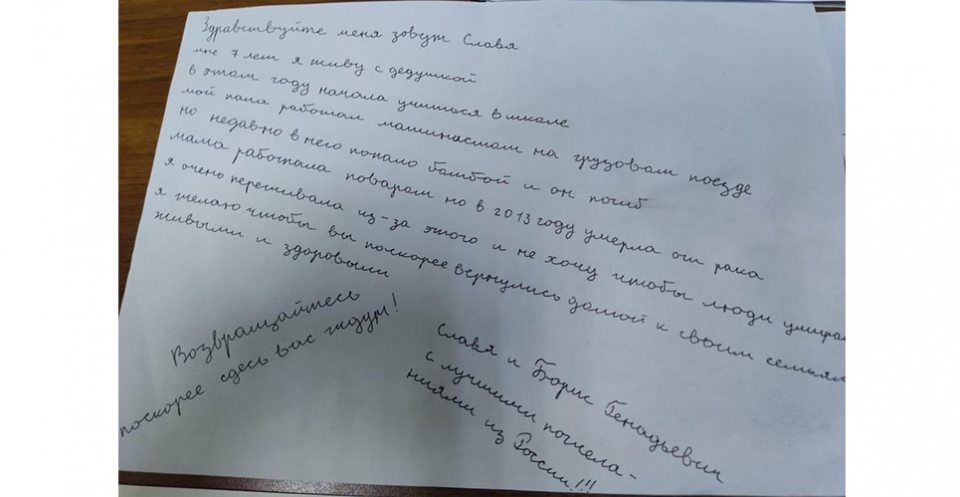 Здравствуйте меня зовут Славя
мне 7 лет я живу с дедушкой
в этом году начала учиться в школе
мой папа работал машинистом на грузовом поезде
но недавно в него попало бамбой и он погиб
мама работала поваром но в 2013 году умерла от рака
я очень переживала из-за этого и не хочу чтобы люди умирал
я желаю чтобы вы поскорее вернулись домой к своим семьям
живыми и здоровыми
Возвращайтесь
поскорее сдесь вас ждут!
Славя и Борис Генадьевич
с лучшими пожела-
ниями из России!!!